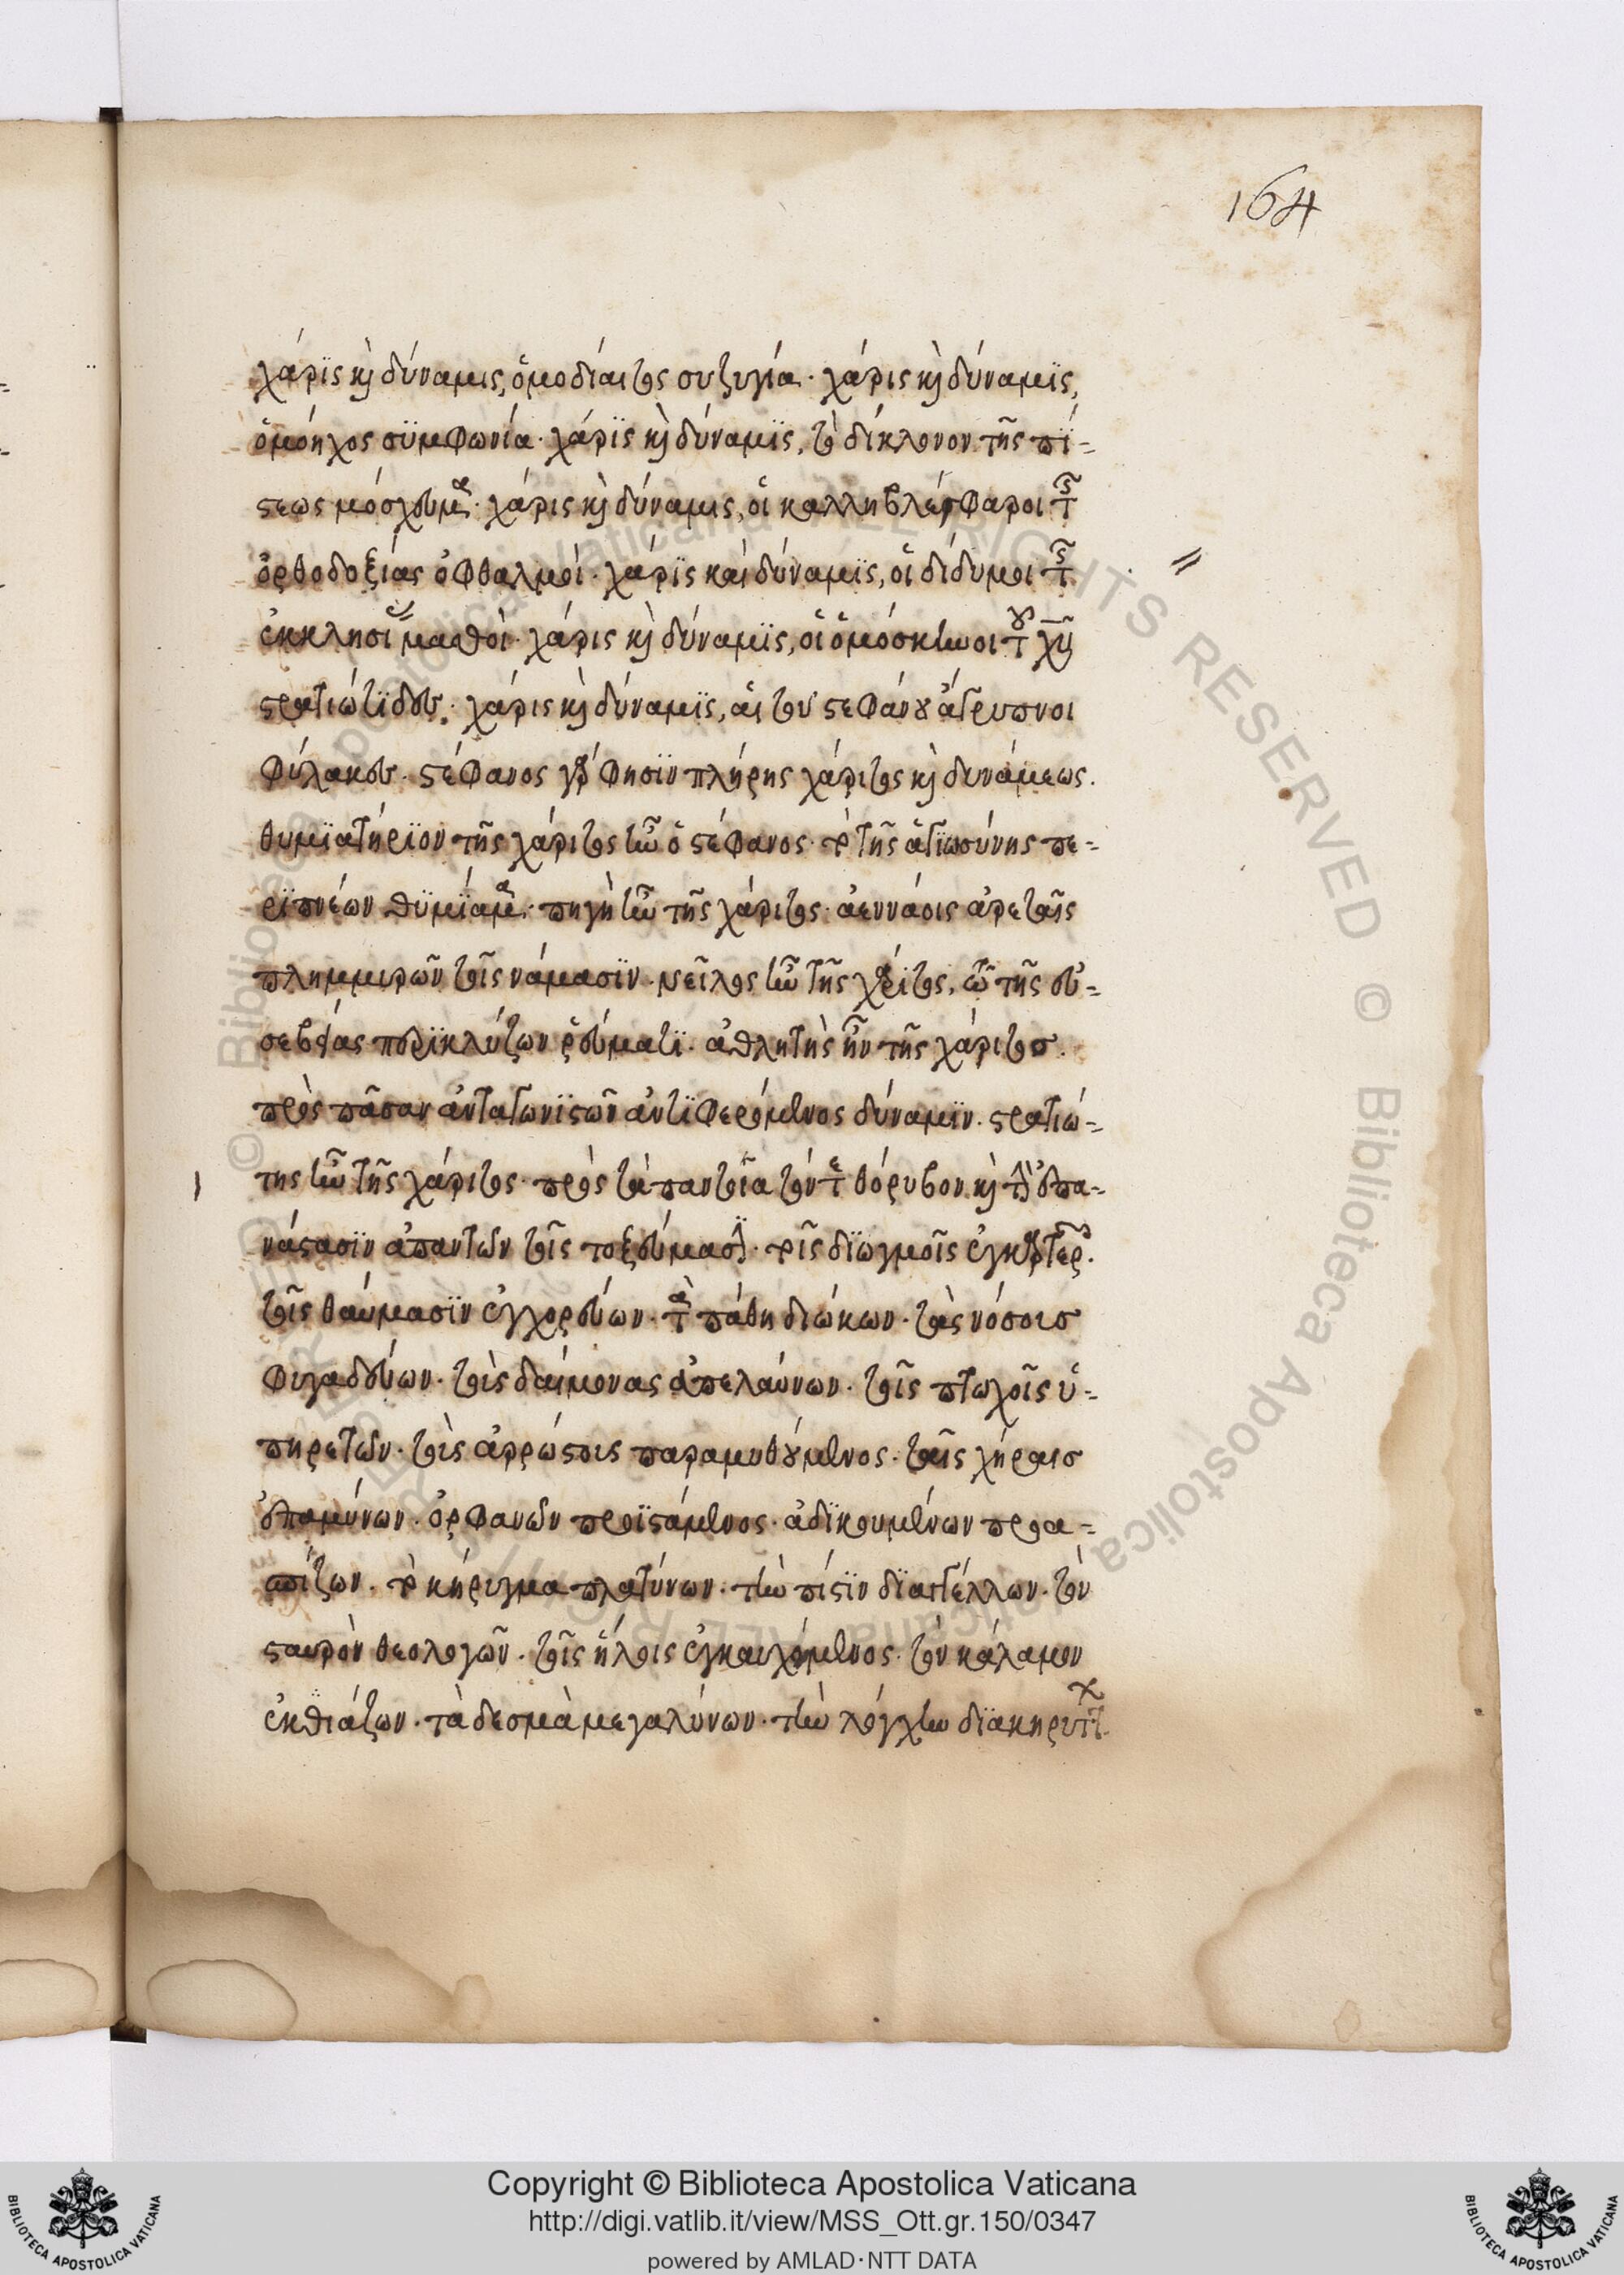 164
χάρϊς κ̀ δύναμις, ὁμοδίαιτος συζυγία· χάρις κ̀ δύναμϊς,
ὁμόηχος σϋμφωνία· χάρϊς κ̀ δύναμϊς, τὸ δίκλονον τῆς πί-
στεως μόσχευμα· χάρις κ̀ δύναμις, οἱ καλληβλέφφαροι τῆς
ὀρθοδοξίας ὀφθαλμοί· χάρϊς καὶ δύναμϊς, οἱ δίδυμοι τῆς
ἐκκλησί μασθοὶ· χάρις κ̀ δύναμϊς, οἱ ὁμόσκηνοι τοῦ χυ
στρατιώτϊδες· χάρις κ̀ δύναμϊς, αἱ τοῦ στεφάνου ἄγρυπνοι
φύλακες· στέφανος γὰρ φησϊν πλήρης χάριτος κ̀ δυνάμεως.
θυμϊατήρϊον τῆς χάριτος ἦν ὁ στέφανος· τὸ τῆς ἁγϊωσύνης πε-
ρϊπνέων θϋμϊάμα· πηγὴ ἦν τῆς χάριτος· ἀεννάοις ἀρεταῖς
πλημμυρῶν τοῖς νάμασϊν· νεῖλος ἦν τῆς χάριτος, τῶ τῆς εὐ-
σεβείας περϊκλύζων ῥεύματϊ· ἀθλητὴς ἦν τῆς χάριτοσ.
πρὸς πᾶσαν ἀνταγωνϊστῶν ἀντϊφερόμενος δύναμϊν· στρατιώ-
της ἦν τῆς χάριτος· πρὸς τὰ παντοῖα τόν τε θόρυβον κ̀ τὴν ἐπα-
νάστασϊν ἀπαντῶν τοῖς τοξεύμασϊ· τοῖς δϊωγμοῖς ἐγκαρτερ.
τοῖς θαύμασϊν ἐγχορεύων· τὰ πάθη διώκων· τὰς νόσοισ
φυγαδεύων· τοὺς δαίμονας ἀπελαύνων· τοῖς πτωχοῖς ὑ-
πηρετῶν· τοὺς ἀρρώστοις παραμυθούμενος· ταῖς χήραισ
ἐπαμύνων· ὀρφανῶν προϊστάμενος· ἀδϊκουμένων προα-
σπίζων· τὸ κήρυγμα πλατύνων· τὴν πίστϊν δϊαγγέλλων· τὸν
σταυρὸν θεολογῶν· τοῖς ἥλοις ἐγκαυχόμενος· τὸν κάλαμον
ἐκθϊάζων· τὰ δεσμὰ μεγαλύνων· τὴν λόγχην δϊακηρυττ
Copyright © Biblioteca Apostolica Vaticana
http://digi.vatlib.it/view/MSS_Ott.gr.150/0347
powered by AMLAD·NTT DATA
BIBLIOTECA APOSTOLICA VATICANA
BIBLIOTECA APOSTOLICA VATICANA
© Biblioteca Apostolica Vaticana ALL RIGHTS RESERVED © Biblioteca Apostolica Vaticana ALL RIGHTS RESERVED